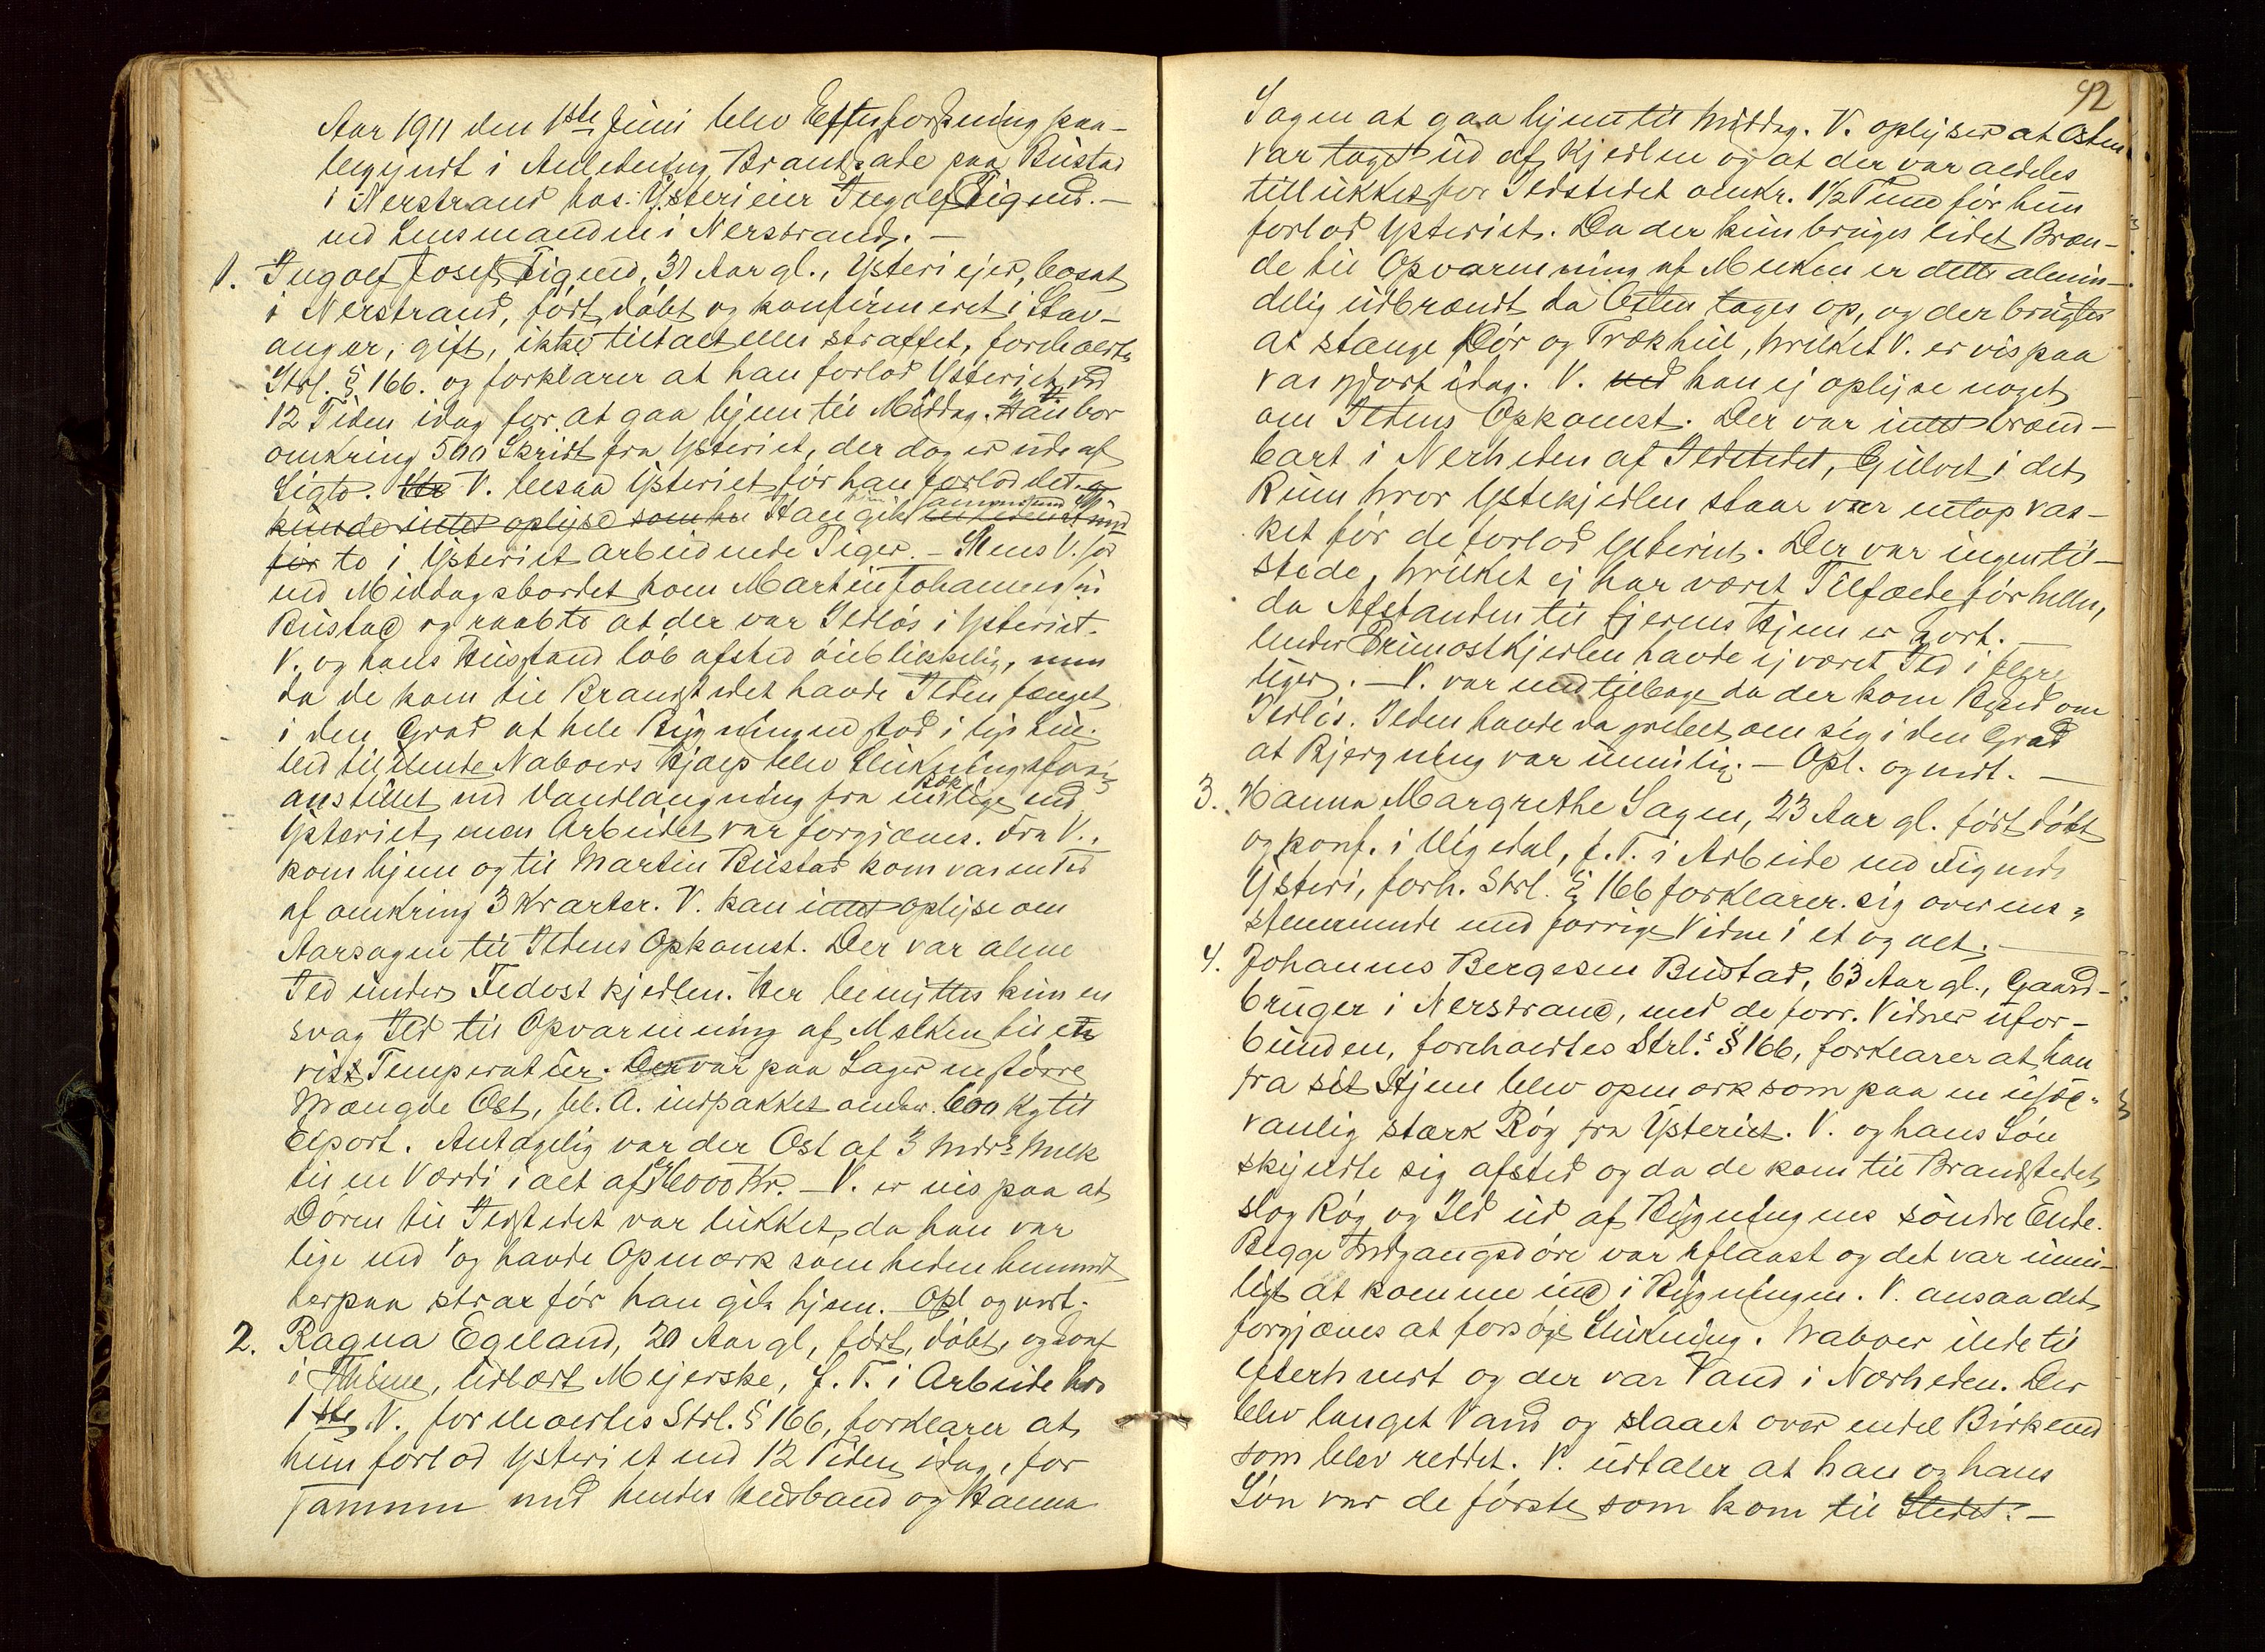 Aar 1911 den 1ste Juni blev Efterforskning paa-
begyndt i Anledning Brandskade paa Bustad
i Nerstrand hos Ysterieier Ingolf Tigned. —
ved Lensmanden i Nerstrand. —
1. Ingolf Josef Tigned, 31 Aar gl., Ysteriejer, bosat
i Nerstrand, født, døbt og konfirmeret i Stav-
anger, gift, ikke tiltalt eller straffet, foreholdtes
Strl. § 166. og forklarer at han forlod Ysteriet ved
12 Tiden idag for at gaa hjem til Middag. Han bor
omkring 500 Skridt fra Ysteriet, der dog er ude af
Sigte. V. besaa Ysteriet før han forlod det og
kunde intet oplyse som Han gik sammen med
før to i Ysteriet arbeidende Piger. — Mens V. sad
ved Middagsbordet kom Martin Johannessen
Bustad og raabte at der var Ildløs i Ysteriet.
V. og hans Husstand løb afsted øieblikkelig, men
da de kom til Brandstedet havde Ilden fænget
i den Grad at hele Bygningen stod i lys Lue.
Ved tililende Naboers Hjælp blev Slukningsforsøg
anstillet med Vandlangning fra bæk lige ved
Ysteriet, men Arbeidet var forgjæves. Fra V.
kom hjem og til Martin Bustad kom var en Tid
af omkring 3 Kvarter. V. kan intet oplyse om
Aarsagen til Ildens Opkomst. Der var alene
Ild under Fedostkjedlen. Her benyttes kun en
svag Ild til Opvarmning af Melken til en
vis Temperatur. Der var paa Lager en større
Mængde Ost, bl. A. indpakket omkr. 600 Kg til
Export. Antagelig var der Ost af 3 Mdrs Melk
til en Værdi i alt af ca 6000 Kr. — V. er vis paa at
Døren til Ildstedet var lukket, da han var
lige ved og havde Opmærksomheden henvendt
herpaa strax før han gik hjem. Opl og vedt.
2. Ragna Egeland, 20 Aar gl, født, døbt, og konf
i Thime, udlært Mejerske, f. T. i Arbeide hos
1ste V. foreholdtes Strl. § 166, forklarer at
hun forlod Ysteriet ved 12 Tiden idag, for
sammen med hendes Husband og Hanna
92
Sagen at gaa hjem til Middag. V. oplyser at Osten
var taget ud af Kjedlen og at der var aldeles
tillukket for Ildstedet omkr. 1½ Time før hun
forlod Ysteriet. Da der kun bruges lidet Bræn-
de til Opvarmning af Melken er dette almin-
delig udbrændt da Osten tages op, og der brugtes
at stænge Dør og Trækhul, hvilket V. er vis paa
var gjort idag. V. ved kan ej oplyse noget
om Ildens Opkomst. Der var intet brænd-
bart i Nerheden af Ildstedet, Gulvet i det
Rum hvor Ystekjedlen staar var netop vas-
ket før de forlod Ysteriet. Der var ingen til-
stede, hvilket ej har været Tilfælde før heller,
da Afstanden til Ejerens Hjem er kort. —
Under Primostkjedlen havde ej været Ild i flere
tiger. — V. var med tilbage da der kom Bud om
Ildløs. Ilden havde da grebet om sig i den Grad
at Bjergning var umulig. — Opl. og vedt. —
3. Hanna Margrethe Sagen, 23 Aar gl. født, døbt
og konf. i Vigedal, f. T. i Arbeide ved Tigneds
Ysteri, forh. Strl. § 166 forklarer sig overens=
stemmende med forrige Vidne i et og alt. —
4. Johannes Bergesen Bustad, 63 Aar gl., Gaard-
bruger i Nerstrand, med de forr. Vidner ufor-
bunden, foreholdtes Strl.s § 166, forklarer at han
fra sit Hjem blev opmærksom paa en usæd-
vanlig stærk Røg fra Ysteriet. V. og hans Søn
skyndte sig afsted og da de kom til Brandstedet
slog Røg og Ild ud af Bygningens søndre Ende.
Begge Indgangsdøre var aflaast og det var umu-
ligt at komme ind i Bygningen. V. ansaa det
forgjæves at forsøge Slukning. Naboer ilede til
efterhvert og der var Vand i Nærheden. Der
blev langet Vand og slaaet over endel Birkeved
som blev reddet. V. udtaler at han og hans
Søn var de første som kom til Stedet. —